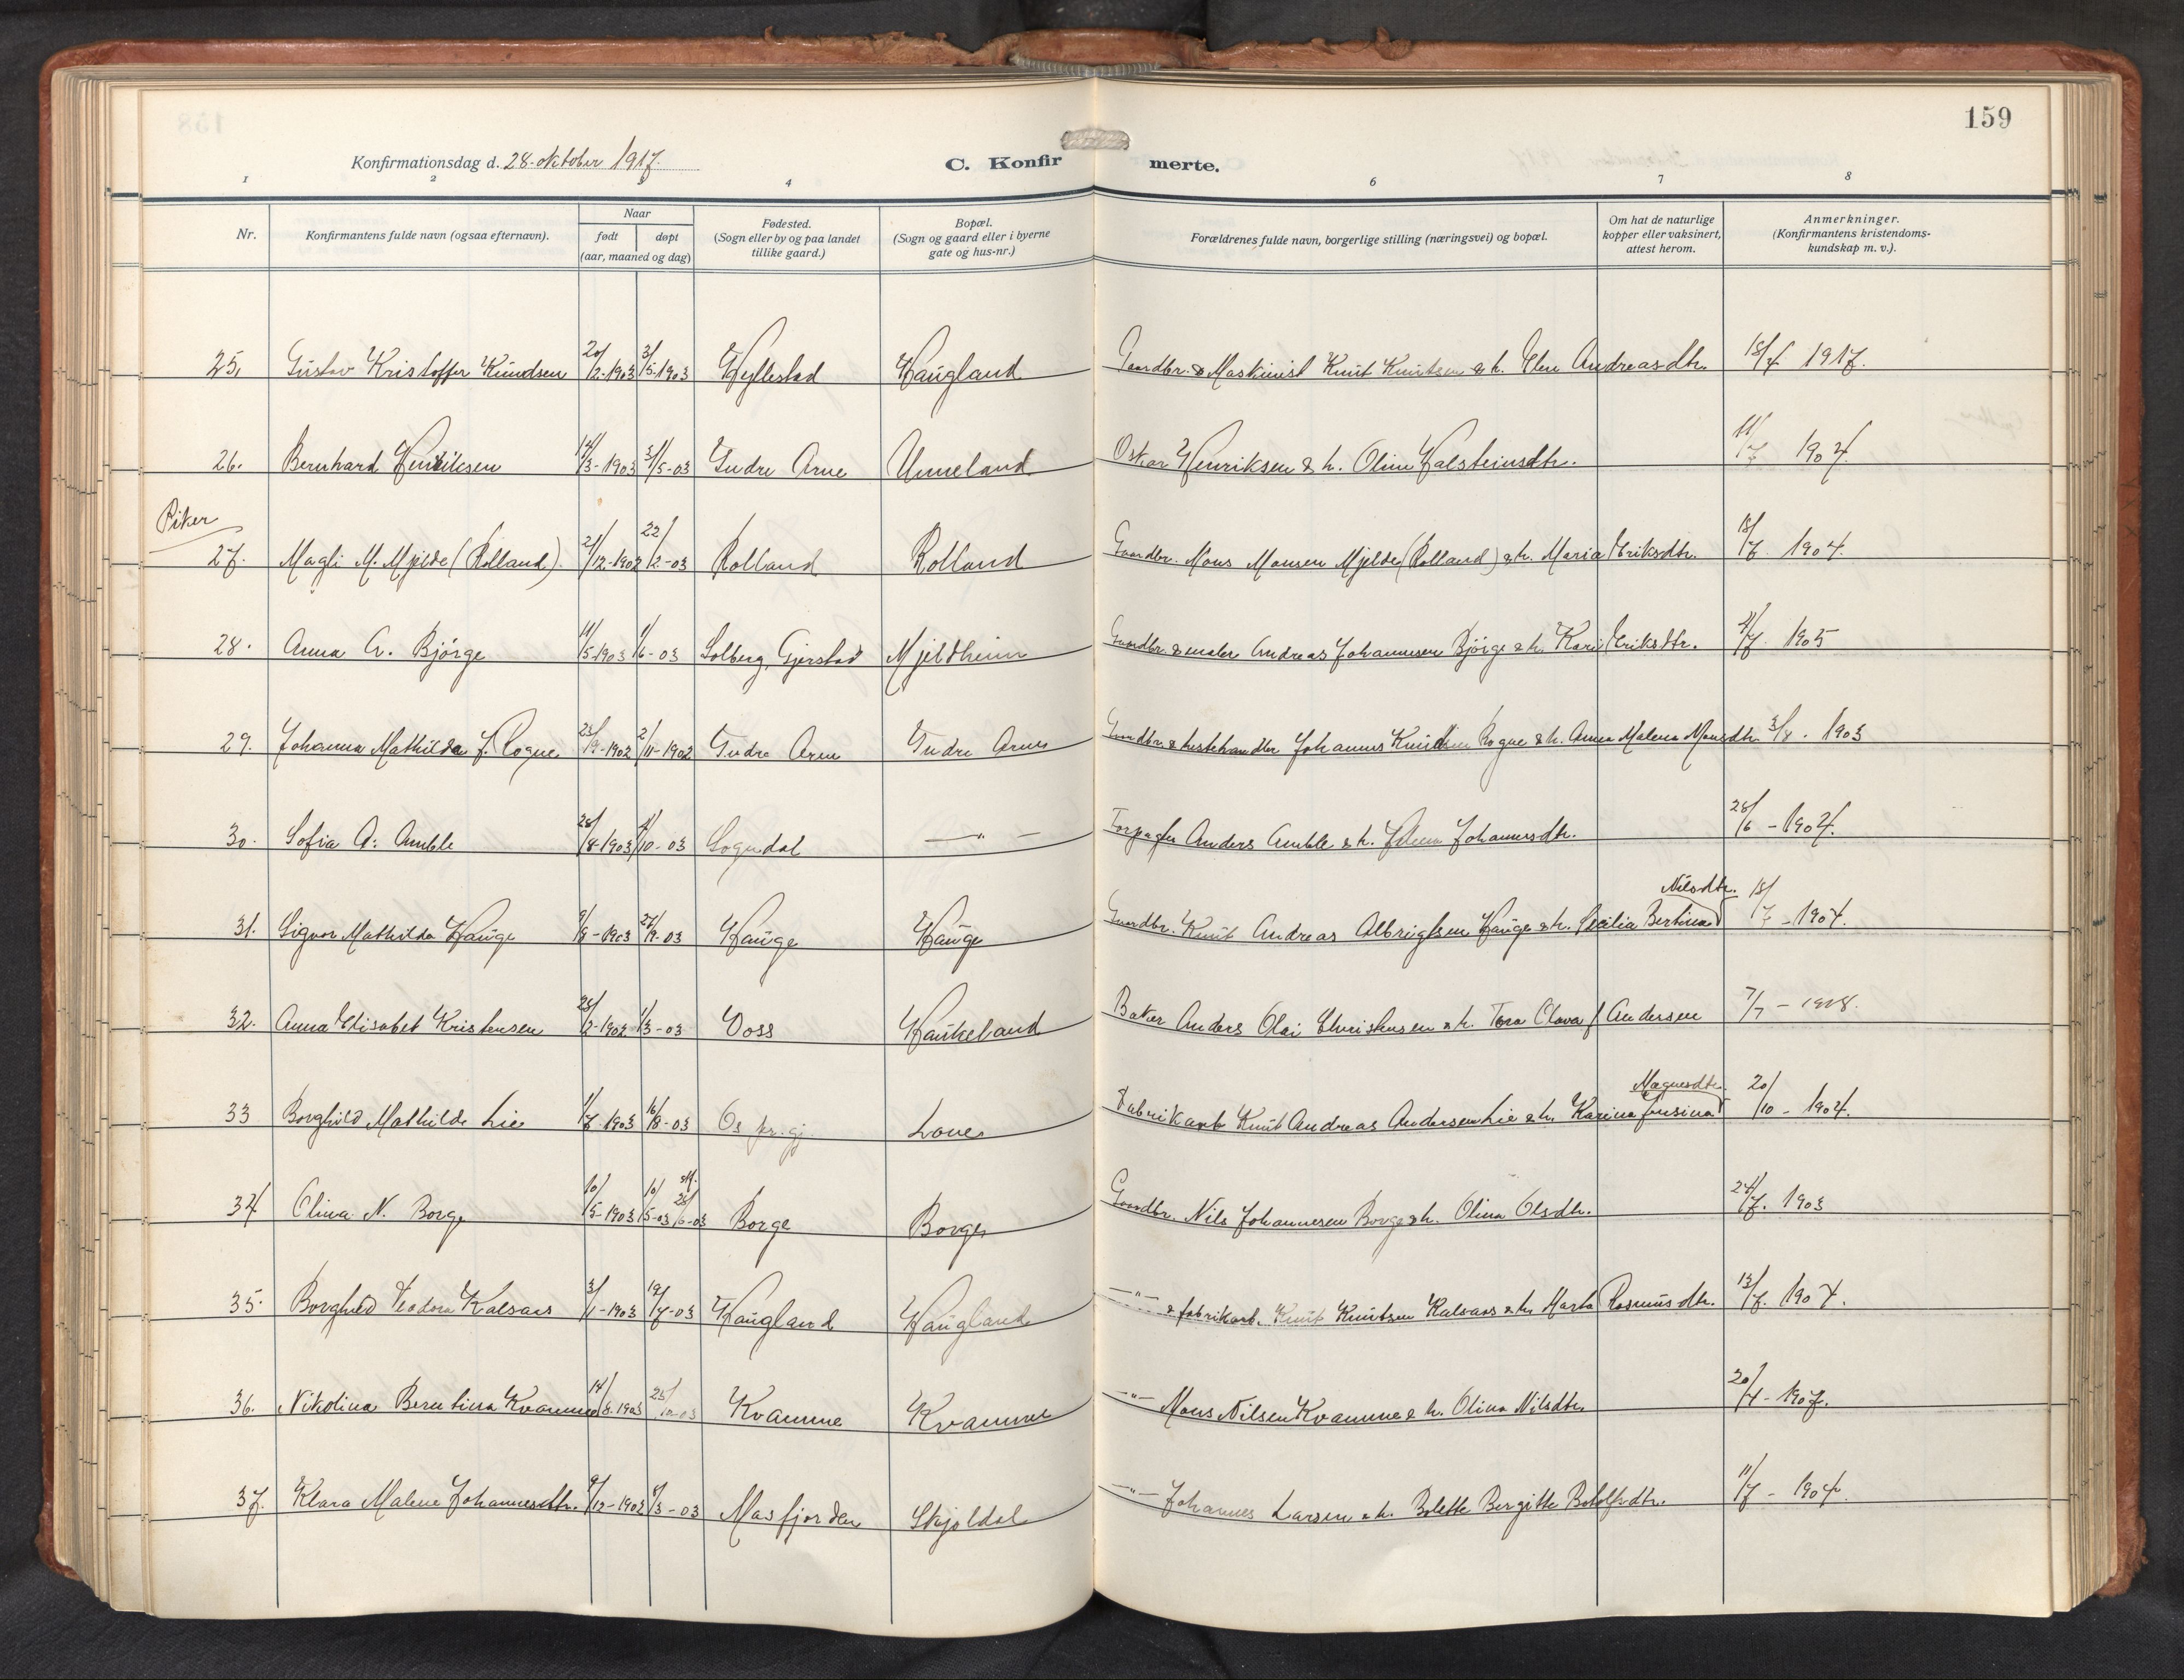 159
Konfirmationsdag d. 28. oktober 1917.
C. Konfirmerte.
1 2 3 4 6 7 8
Nr. Konfirmantens fulde navn (ogsaa efternavn). Naar født døpt (aar, maaned og dag) Fødested. (Sogn eller by og paa landet tillike gaard.) Bopæl. (Sogn og gaard eller i byerne gate og hus-nr.) Forældrenes fulde navn, borgerlige stilling (næringsvei) og bopæl. Om hat de naturlige kopper eller vaksinert, attest herom. Anmerkninger. (Konfirmantens kristendomskundskap m. v.).
25. Gustav Kristoffer Knudsen 20/2-1903 3/5-1903 Hyllestad Haugland Gaardbr. & Maskinist Knut Knutsen & h. Elen Andreasdtr. 18/4 1917.
26. Bernhard Henriksen 14/3-1903 31/5-03 Indre Arne Unneland Oskar Henriksen & h. Olina Halsteinsdtr. 11/7 1904.
Piker
27. Magli M. Mjelde (Rolland). 21/12-1902 22/2-03 Rolland Rolland Gaardbr. Mons Monsen Mjelde (Rolland) & h. Maria Eriksdtr. 18/7 1904.
28. Anna A. Bjørge 11/5-1903 1/6-03 Solberg, Gjerstad Mjeldheim Gaardbr. & maler Andreas Johannesen Bjørge & h. Kari Eriksdtr. 4/7 1905
29. Johanna Mathilda J. Rogne 23/9-1902 2/11-1902 Indre Arne Indre Arne Gaardbr. & hestehandler Johannes Knudsen Rogne & h. Anna Malena Monsdtr. 3/8. 1903
30. Sofia A. Amble 28/8-1903 4/10-03 Sogndal —"— Anders Amble & h. Johannesdtr. 28/6 - 1904.
31. Signor Mathilda Hauge 9/8-1903 27/9-03 Hauge Hauge Gaardbr. Knut Andreas Albrigtsen Hauge & h. Sesilia Bertina Nilsdtr. 18/7 - 1904.
32. Anna Elisabet Kristensen 28/2-1902 1/3-03 Voss Haukeland Baker Anders Olai Christensen & h. Tora Olava f. Andersen 7/7 - 1908.
33 Borghild Mathilde Lie 1/7-1903 16/8-03 Os pr.gj. Lone Fabrikarb Knut Andreas Andersen Lie & h. Karina Magnesdtr. 20/10 - 1904.
34 Olina N. Borge 10/5-1903 10/5-03 st. 28/6-03 Borge Borge Gaardbr. Nils Johannesen Borge & h. Olina Olsdtr. 24/7. 1903
35. Borghild Teodora Kalsaas 3/1-1903 19/7-03 Haugland Haugland —"— & fabrikarb. Knut Knutsen Kalsaas & h. Marta Rasmusdtr. 13/7. 1904.
36. Nikolina Berntina Kvamme 14/8-1903 25/10-03 Kvamme Kvamme —"— Mons Nilsen Kvamme & h. Olina Nilsdtr. 20/4 - 1907.
37. Klara Malene Johannesdtr. 9/12-1902 8/3-03 Masfjorden Skjoldal —"— Johannes Larsen & h. Bolette Bergitte Botolfsdtr. 11/7 - 1904.